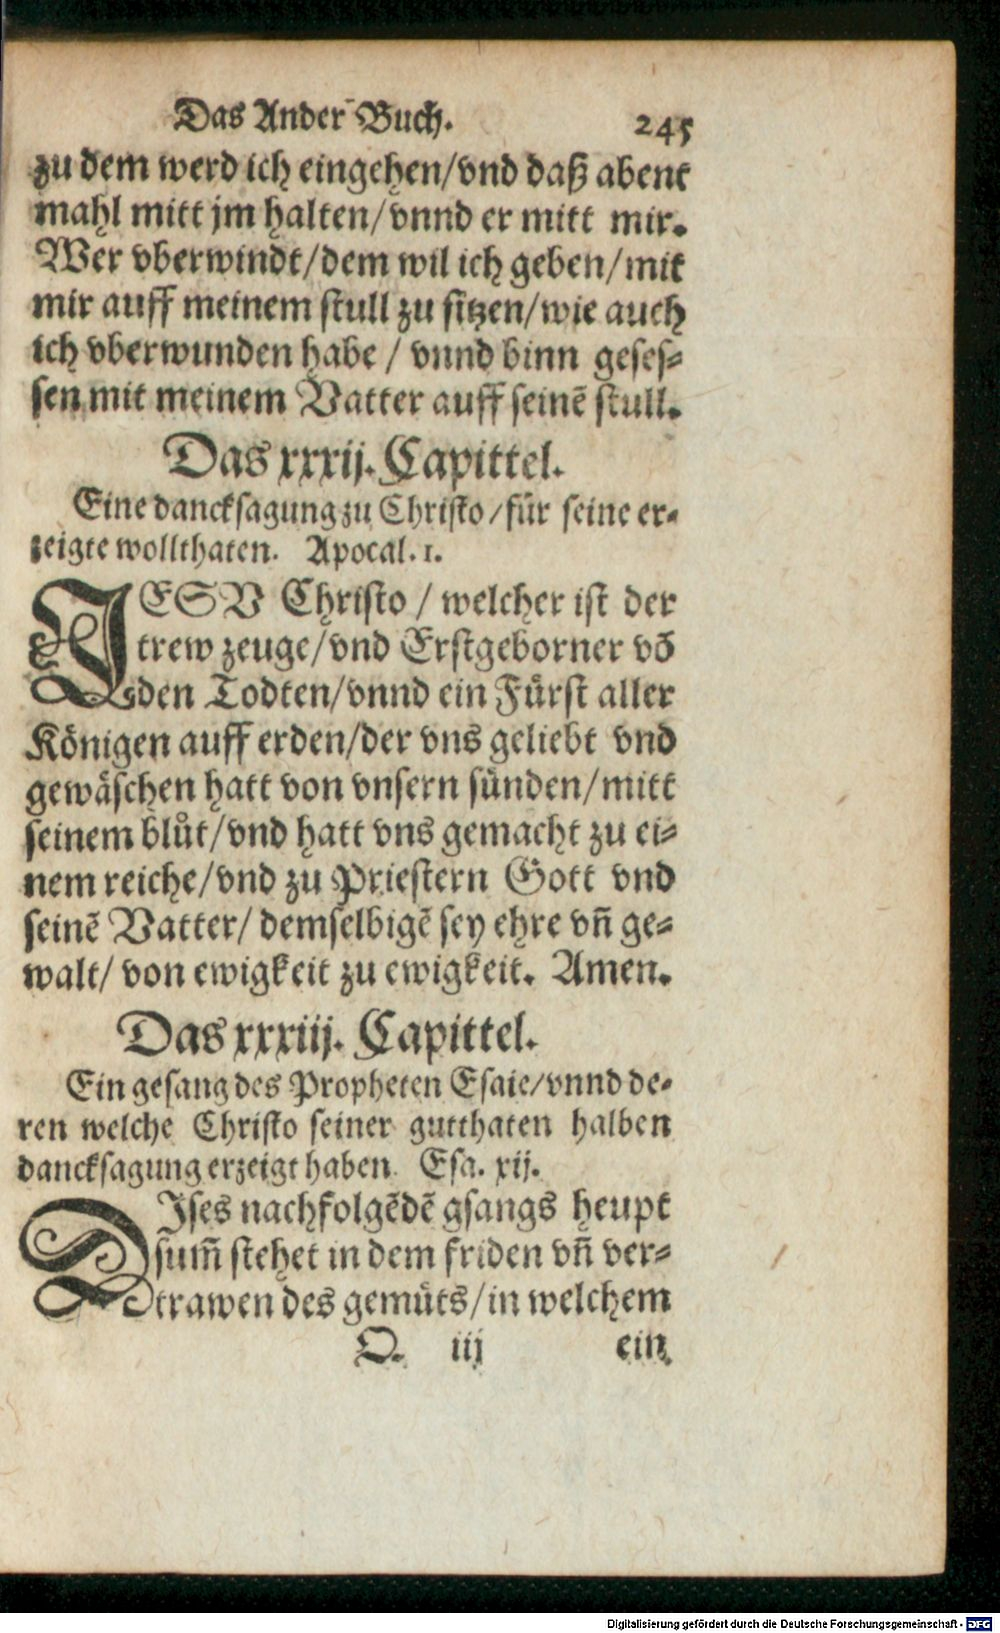 Das Ander Buch. 245
zu dem werd ich eingehen/vnd daß abent
mahl mitt jm halten/vnnd er mitt mir.
Wer vberwindt/dem wil ich geben/mit
mir auff meinem stull zu sitzen/wie auch
ich vberwunden habe / vnnd binn geses-
sen mit meinem Vatter auff seinē stull.
Das xxxij. Capittel.
Eine dancksagung zu Christo/für seine er-
zeigte wollthaten. Apocal. 1.
JESV Christo / welcher ist der
trew zeuge/vnd Erstgeborner vō
den Todten/vnnd ein Fürst aller
Königen auff erden/der vns geliebt vnd
gewäschen hatt von vnsern sünden/mitt
seinem blůt/vnd hatt vns gemacht zu ei-
nem reiche/vnd zu Priestern Gott vnd
seinē Vatter/ demselbigē sey ehre vn̄ ge-
walt/ von ewigkeit zu ewigkeit. Amen.
Das xxxiij. Capittel.
Ein gesang des Propheten Esaie/vnnd de-
ren welche Christo seiner gutthaten halben
dancksagung erzeigt haben. Esa. xij.
DIses nachfolgēdē gsangs heupt
sum̄ stehet in dem friden vn̄ ver-
trawen des gemüts/in welchem
Q. iij ein
Digitalisierung gefördert durch die Deutsche Forschungsgemeinschaft - DFG